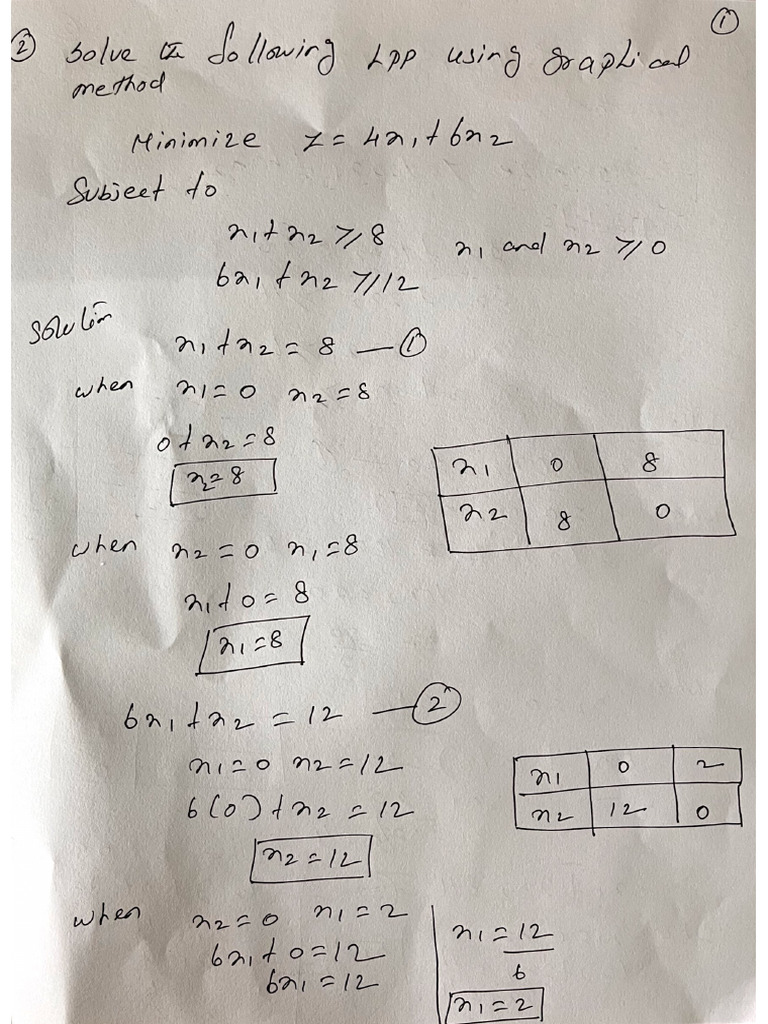 ①
② Solve the following LPP using graphical
method
Minimize Z = 4x₁ + 6x₂
Subject to
x₁ + x₂ ≥ 8
x₁ and x₂ ≥ 0
6x₁ + x₂ ≥ 12
Solution
x₁ + x₂ = 8 — ①
when x₁ = 0 x₂ = 8
0 + x₂ = 8
x₂ = 8
x₁ 0 8
x₂ 8 0
when x₂ = 0 x₁ = 8
x₁ + 0 = 8
x₁ = 8
6x₁ + x₂ = 12 — ②
x₁ = 0 x₂ = 12
6(0) + x₂ = 12
x₂ = 12
x₁ 0 2
x₂ 12 0
when x₂ = 0 x₁ = 2
6x₁ + 0 = 12
6x₁ = 12
x₁ = 12
6
x₁ = 2